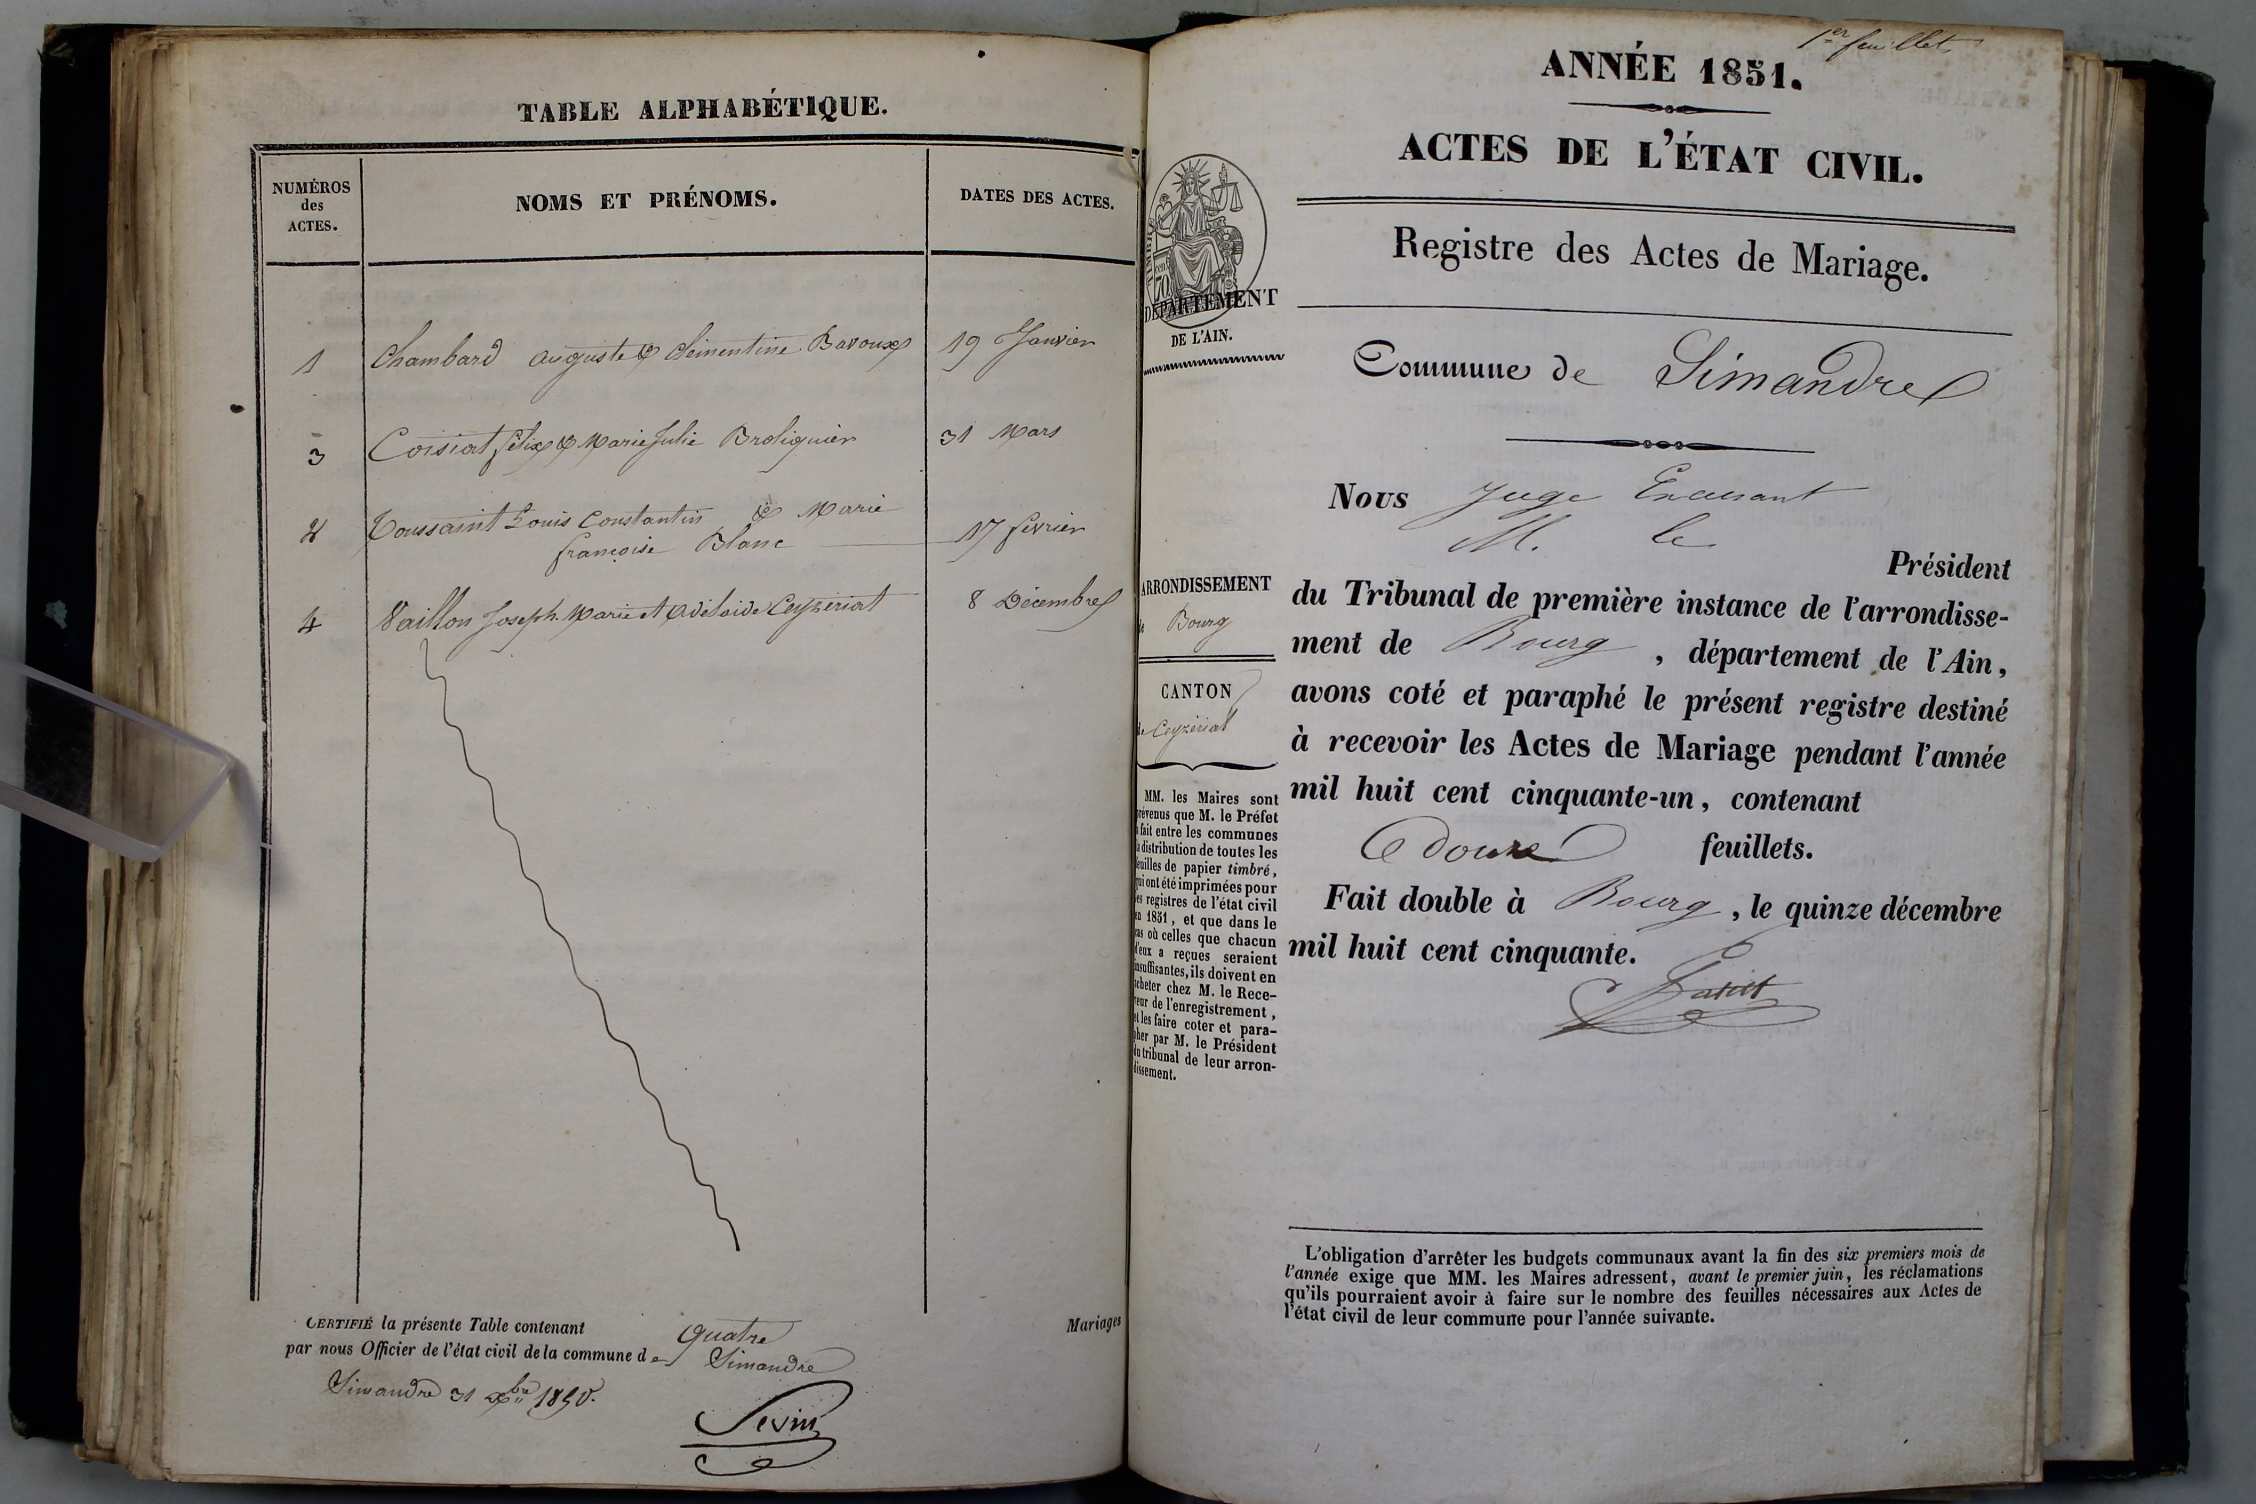 TABLE ALPHABÉTIQUE.
NUMÉROS
des
ACTES.
NOMS ET PRÉNOMS.
DATES DES ACTES.
1 Chambard auguste & Clémentine Bavoux 19 Janvier
3 Coisiat félix & Marie Julie Broliquier 31 Mars
2 Toussaint Louis Constantin & Marie
françoise Blanc 17 février
4 Vaillon Joseph Marie et Adélaïde Ceyzériat 8 Décembre
CERTIFIÉ la présente Table contenant quatre Mariages
par nous Officier de l'état civil de la commune de Simandre
Simandre 31 Xbre 1850.
Sevin
1er feuillet
ANNÉE 1851.
ACTES DE L'ÉTAT CIVIL.
Registre des Actes de Mariage.
TIMBRE
70
DÉPARTEMENT
DE L'AIN.
Commune de Simandre
Nous Juge
M. le
Président
du Tribunal de première instance de l'arrondisse-
ment de Bourg , département de l'Ain,
avons coté et paraphé le présent registre destiné
à recevoir les Actes de Mariage pendant l'année
mil huit cent cinquante-un, contenant
douze feuillets.
Fait double à Bourg, le quinze décembre
mil huit cent cinquante.
ARRONDISSEMENT
de Bourg
CANTON
de Ceyzériat
MM. les Maires sont
prévenus que M. le Préfet
a fait entre les communes
la distribution de toutes les
feuilles de papier timbré,
qui ont été imprimées pour
les registres de l'état civil
en 1851, et que dans le
cas où celles que chacun
d'eux a reçues seraient
insuffisantes, ils doivent en
acheter chez M. le Rece-
veur de l'enregistrement,
et les faire coter et para-
pher par M. le Président
du tribunal de leur arron-
dissement.
L'obligation d'arrêter les budgets communaux avant la fin des six premiers mois de
l'année exige que MM. les Maires adressent, avant le premier juin, les réclamations
qu'ils pourraient avoir à faire sur le nombre des feuilles nécessaires aux Actes de
l'état civil de leur commune pour l'année suivante.